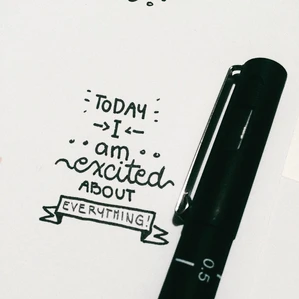 TODAY
I
am
excited
ABOUT
EVERYTHING!
0.5